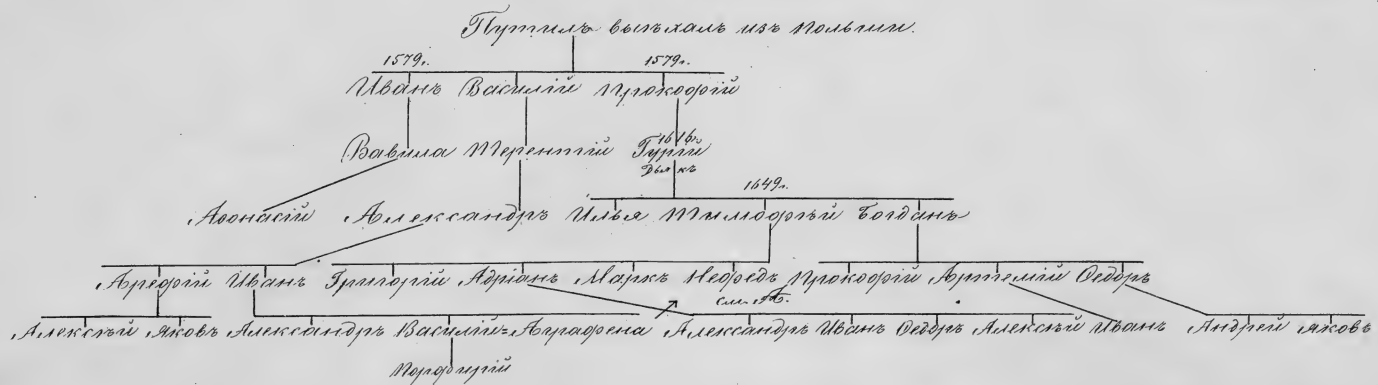 Путилъ выѣхалъ изъ Польши.
1579г. 1579г.
Иванъ Василій Прокофій
1616г.
Вавила Терентій Гурій
Дьякъ
1649г.
Аѳонасій Александръ Илья Тимофѣй Богданъ
Арефій Иванъ Григорій Адріанъ Маркъ Нефедъ Прокофій Артемій Ѳедоръ
см. А.
Алексѣй Яковъ Александръ Василій Аграфена Александръ Иванъ Ѳедоръ Алексѣй Иванъ Андрей Яковъ
Порфирій